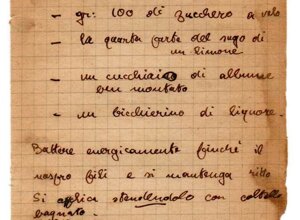 - gr: 100 di zucchero a velo
- la quarta parte del sugo di
un limone
- un cucchiaio di albume
ben montato
- un bicchierino di liquore.
Battere energicamente finché il
nastro fili e si mantenga ritto
Si applica stendendolo con coltello
bagnato.